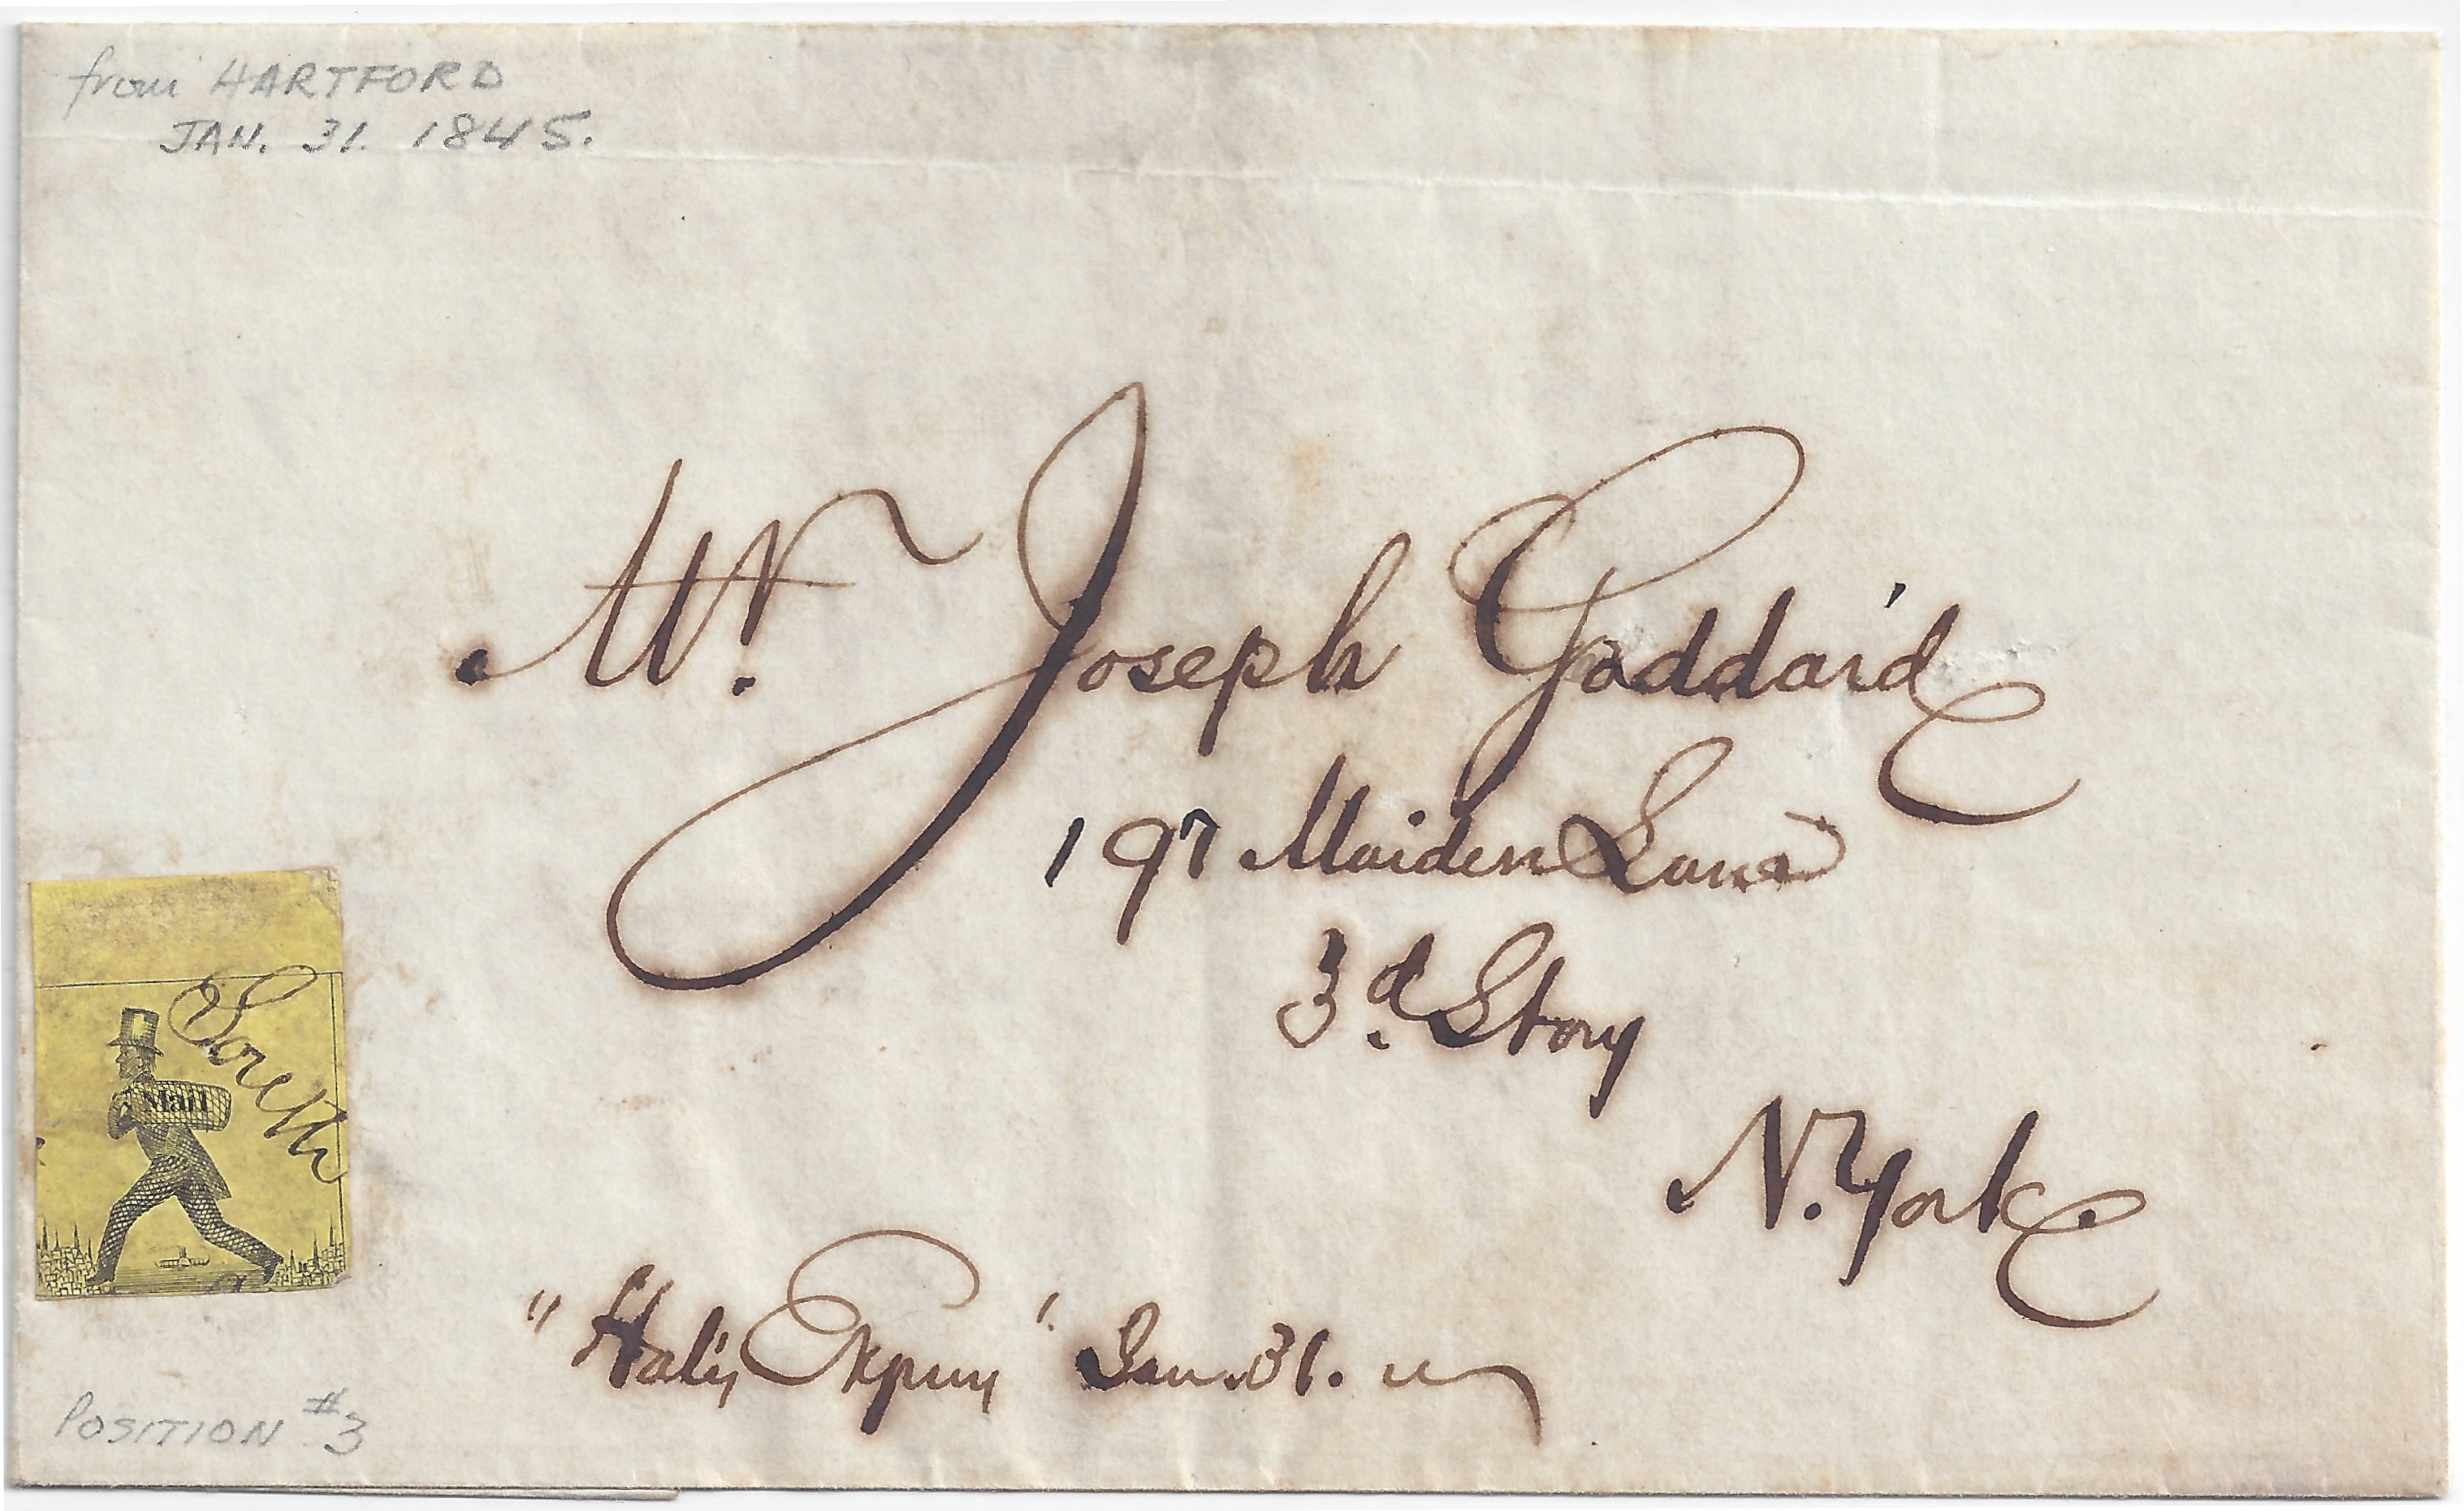 from HARTFORD
JAN. 31. 1845.
Mr. Joseph Goddard
197 Maiden Lane
3d. Story
N. York.
South
Mail
"Hale's Express" Jan. 31.
POSITION #3